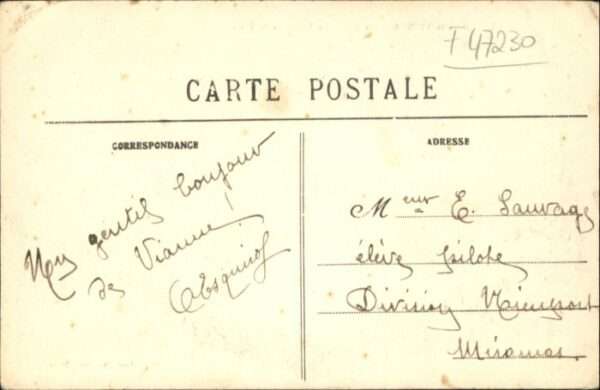 F 47230
CARTE POSTALE
CORRESPONDANCE
Un gentil bonjour
de Vianne !
Esquirol
ADRESSE
Mr E. Sauvage
élève pilote
Division Nieuport
Miramas.